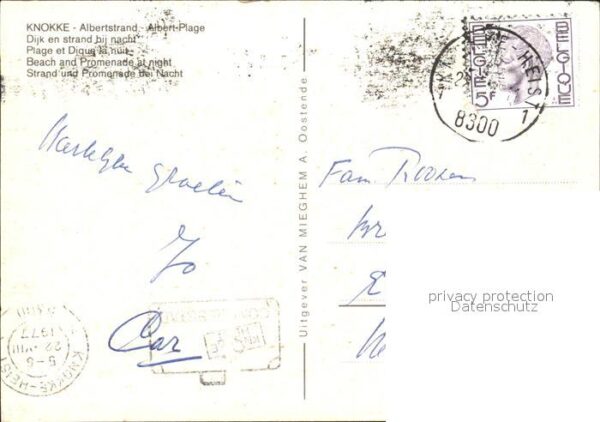 KNOKKE - Albertstrand - Albert-Plage
Dijk en strand bij nacht
Plage et Digue la nuit
Beach and Promenade at night
Strand und Promenade bei Nacht
BELGIE
BELGIQUE
5F
KNOKKE-HEIST
8300 1
Hartelijke groeten
Jo
Car
Uitgever VAN MIEGHEM A. Oostende
Fam Roosen
privacy protection
Datenschutz
KNOKKE-HEIST
22 VIII
1977